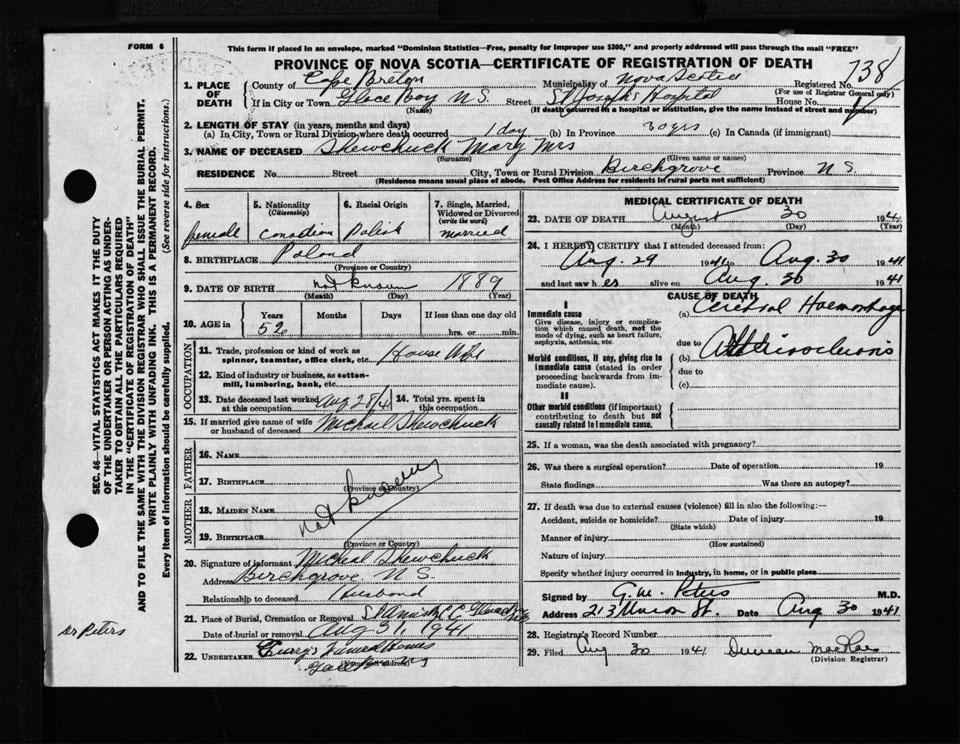 FORM 6
This form if placed in an envelope, marked "Dominion Statistics—Free, penalty for improper use $300," and properly addressed will pass through the mail "FREE"
PROVINCE OF NOVA SCOTIA—CERTIFICATE OF REGISTRATION OF DEATH
738
1. PLACE OF DEATH County of Cape Breton Municipality of Nova Scotia Registered No.
(For use of Registrar General only)
If in City or Town Glace Bay N.S. Street St Joseph's Hospital House No.
(Name) (If death occurred in a hospital or institution, give the name instead of street and number)
2. LENGTH OF STAY (in years, months and days)
(a) In City, Town or Rural Division where death occurred 1 day (b) In Province 30 yrs (c) In Canada (if immigrant)
3. NAME OF DECEASED Shewchuck Mary Mrs
(Surname) (Given name or names)
RESIDENCE No. Street City, Town or Rural Division Birchgrove Province N S.
(Residence means usual place of abode. Post Office Address for residents in rural parts not sufficient)
4. Sex
female
5. Nationality
(Citizenship)
Canadian
6. Racial Origin
Polish
7. Single, Married, Widowed or Divorced
(write the word)
married
8. BIRTHPLACE Poland
(Province or Country)
9. DATE OF BIRTH not known 1889
(Month) (Day) (Year)
10. AGE in Years Months Days If less than one day old
52 hrs. or min.
OCCUPATION
11. Trade, profession or kind of work as spinner, teamster, office clerk, etc. House Wife
12. Kind of industry or business, as cotton-mill, lumbering, bank, etc.
13. Date deceased last worked at this occupation Aug 28/41
14. Total yrs. spent in this occupation
15. If married give name of wife or husband of deceased Michael Shewchuck
FATHER
16. Name
17. BIRTHPLACE
(Province or Country)
not known
MOTHER
18. MAIDEN NAME
19. BIRTHPLACE
(Province or Country)
20. Signature of informant Micheal Shewchuck
Address Birchgrove, N S.
Relationship to deceased Husband
21. Place of Burial, Cremation or Removal
Date of burial or removal Aug 31, 1941
22. UNDERTAKER Curry's Funeral Homes
(Name and address)
MEDICAL CERTIFICATE OF DEATH
23. DATE OF DEATH August 30 1941
(Month) (Day) (Year)
24. I HEREBY CERTIFY that I attended deceased from:
Aug. 29 1941 to Aug. 30 1941
and last saw h er alive on Aug. 30 1941
CAUSE OF DEATH
I
Immediate cause (a) Cerebral Haemorrhage
Give disease, injury or complication which caused death, not the mode of dying, such as heart failure, asphyxia, asthenia, etc.
due to
Morbid conditions, if any, giving rise to immediate cause (stated in order proceeding backwards from immediate cause).
(b)
due to
(c)
II
Other morbid conditions (if important) contributing to death but not causally related to immediate cause.
25. If a woman, was the death associated with pregnancy?
26. Was there a surgical operation? Date of operation 19
State findings Was there an autopsy?
27. If death was due to external causes (violence) fill in also the following:—
Accident, suicide or homicide? Date of injury 19
(State which)
Manner of injury
(How sustained)
Nature of injury
Specify whether injury occurred in industry, in home, or in public place
Signed by G. W. Peters M.D.
Address 213 Union St. Date Aug 30 1941
28. Registrar's Record Number
29. Filed Aug 30 1941 Duncan
(Division Registrar)
SEC. 46—VITAL STATISTICS ACT MAKES IT THE DUTY
OF THE UNDERTAKER OR PERSON ACTING AS UNDERTAKER TO OBTAIN ALL THE PARTICULARS REQUIRED
IN THE "CERTIFICATE OF REGISTRATION OF DEATH"
AND TO FILE THE SAME WITH THE DIVISION REGISTRAR WHO SHALL ISSUE THE BURIAL PERMIT.
WRITE PLAINLY WITH UNFADING INK. THIS IS A PERMANENT RECORD.
Every item of information should be carefully supplied. (See reverse side for instructions.)
Dr Peters